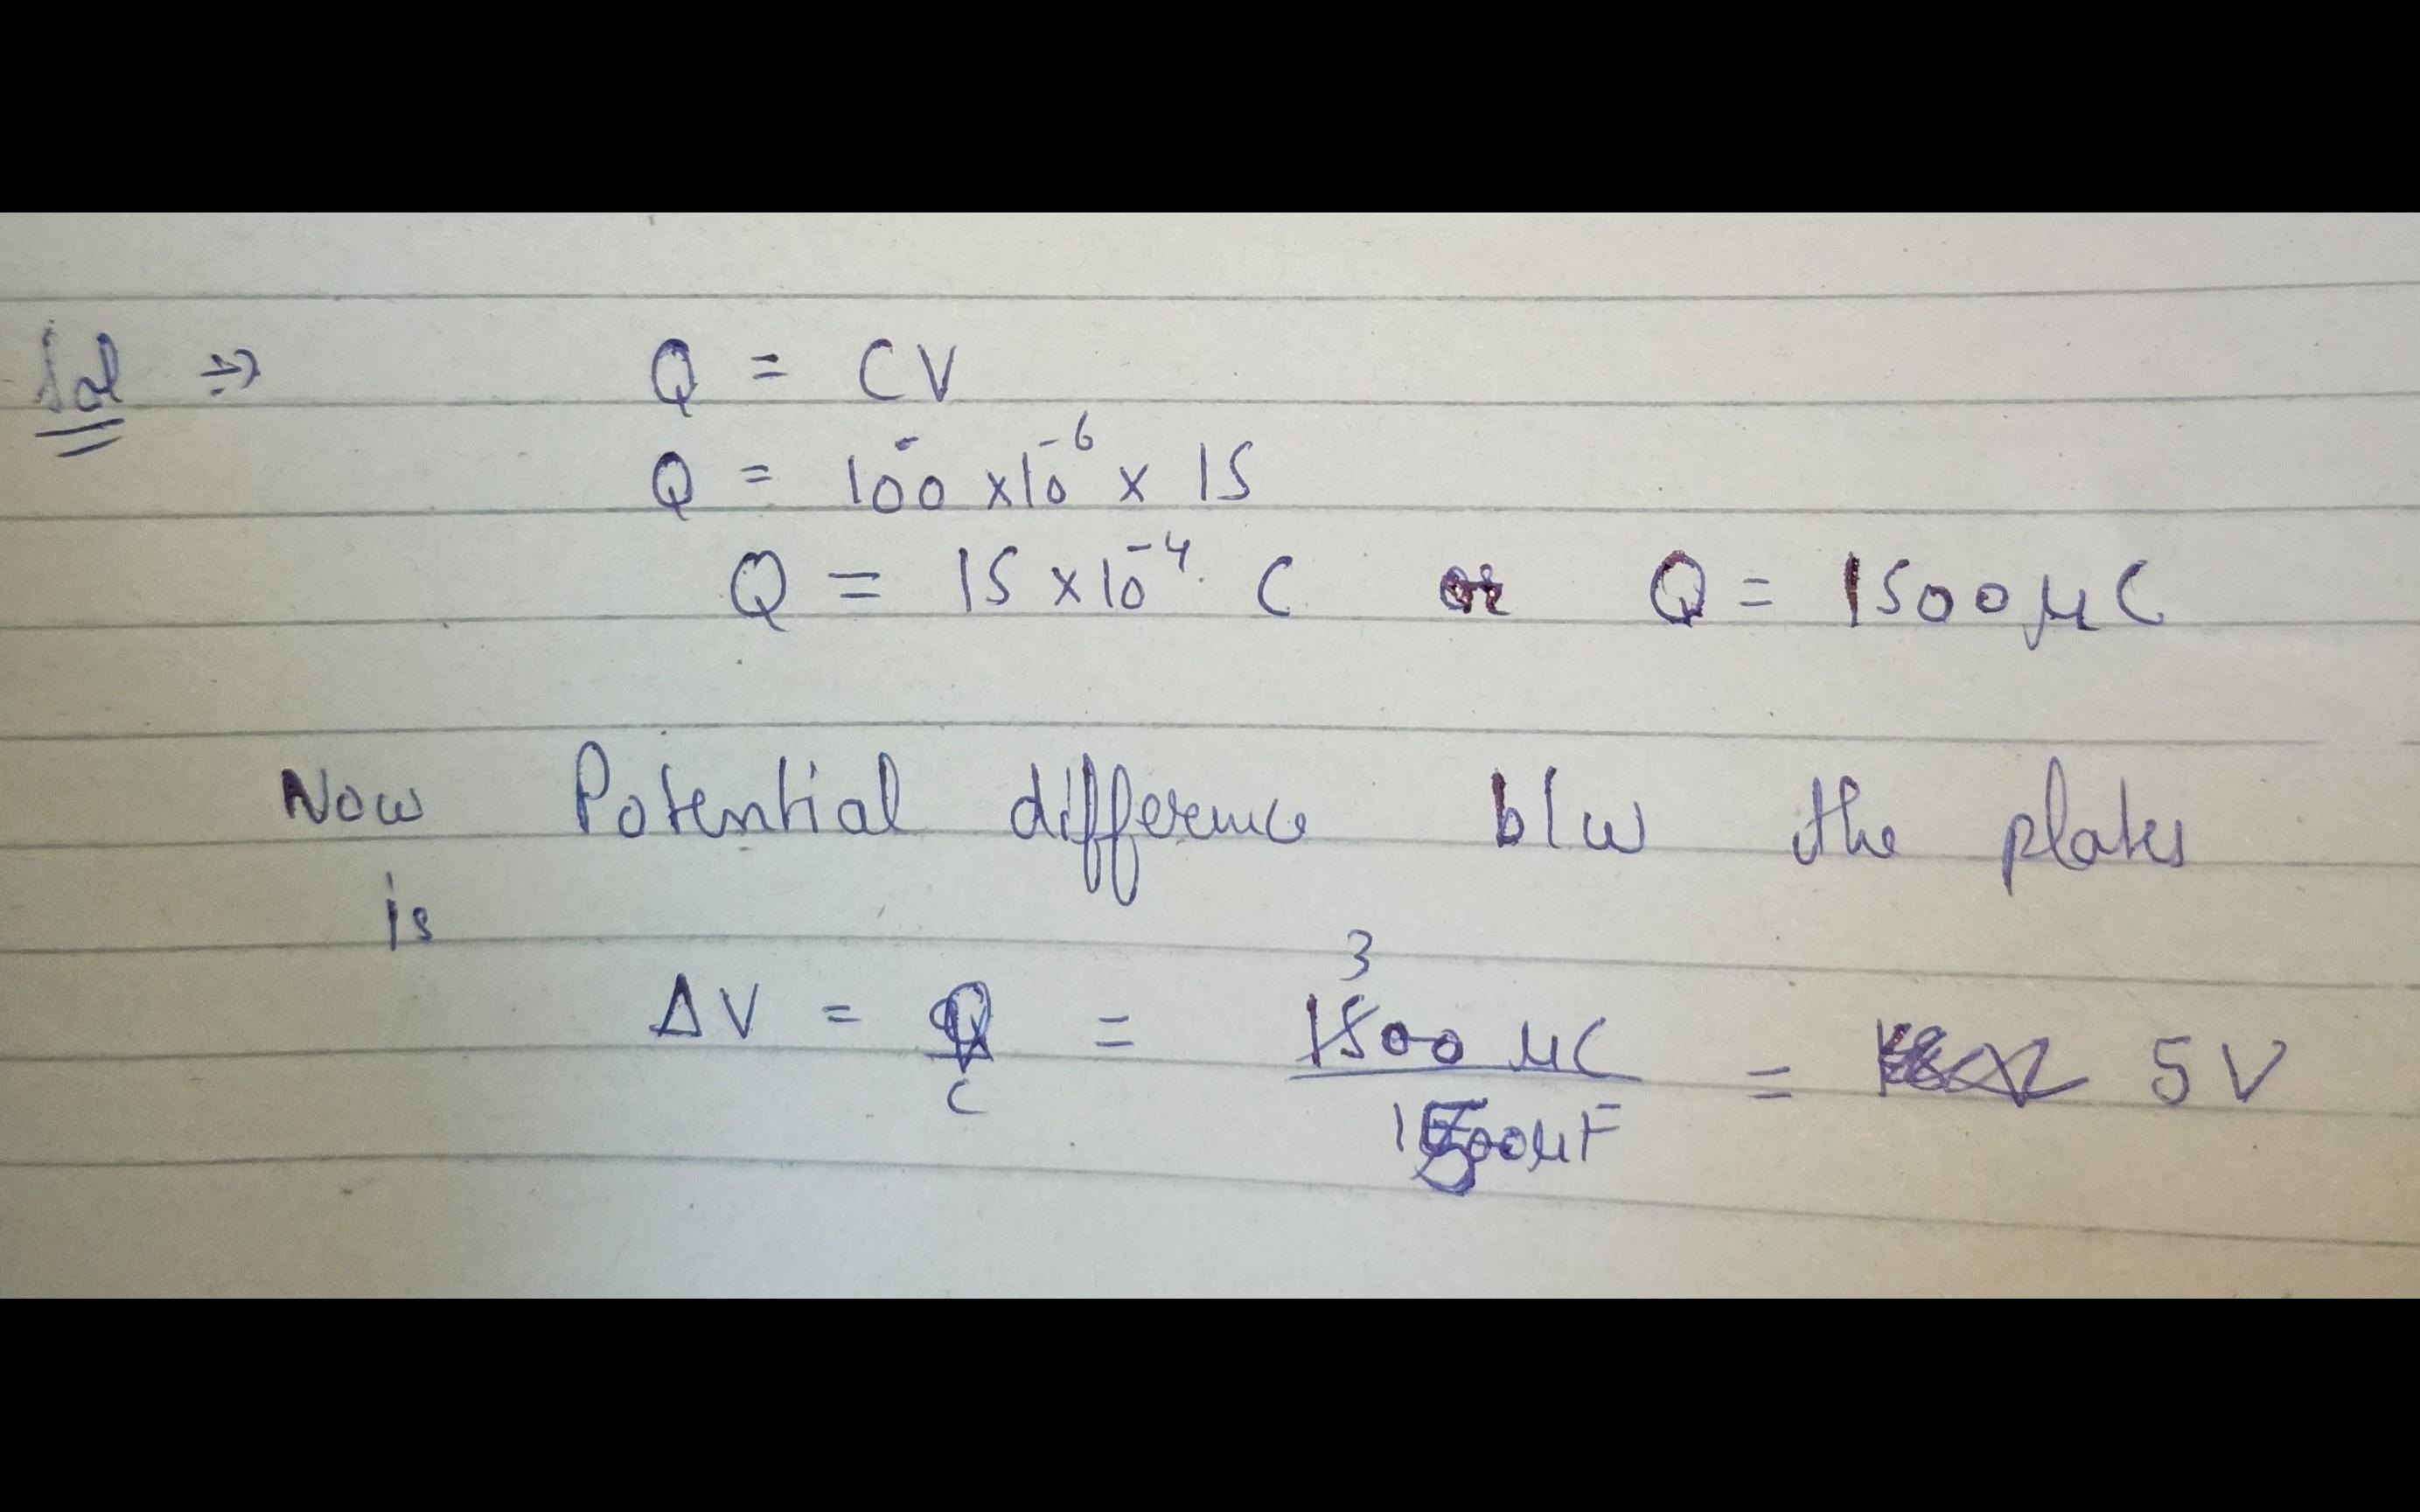 Sol ⇒ Q = CV
Q = 100 × 10⁻⁶ × 15
Q = 15 × 10⁻⁴ C or Q = 1500 μC
Now Potential difference b/w the plates
is
3
ΔV = Q/C = 1500 μC / 500 μF = 5 V